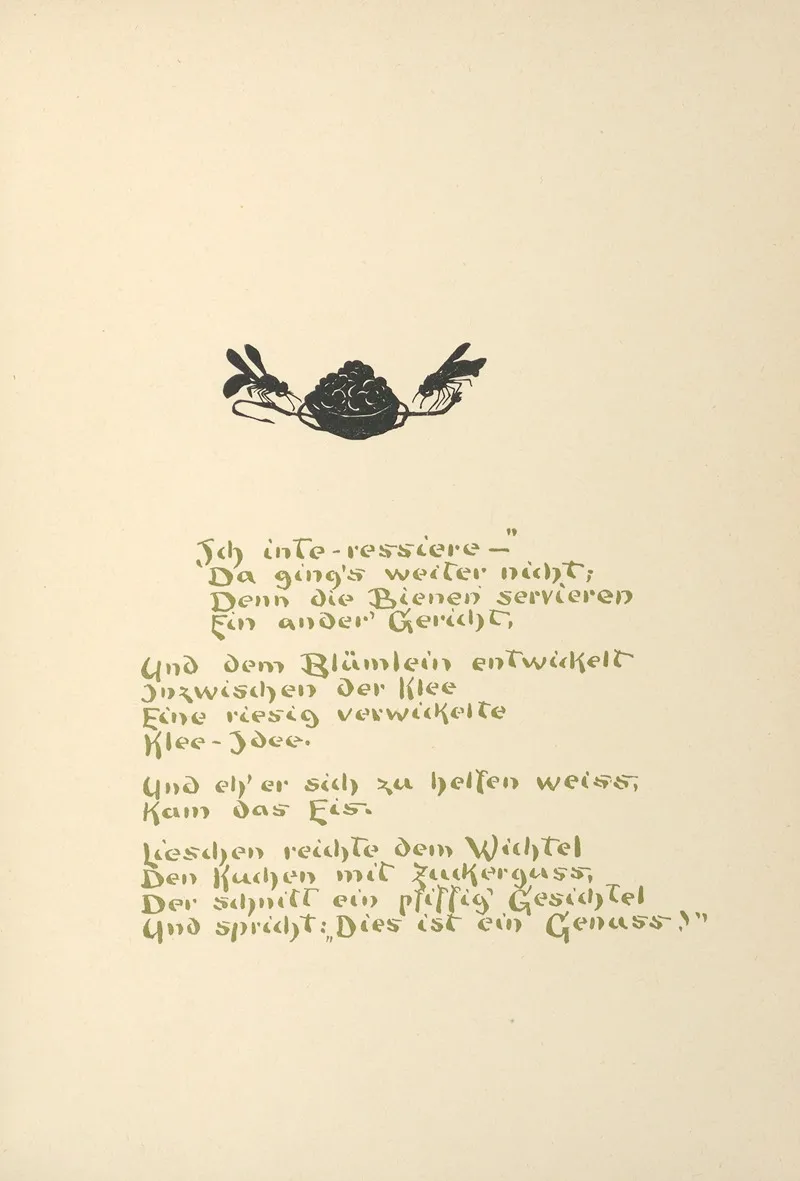 Ich inte-ressiere —"
Da ging's weiter nicht;
Denn die Bienen servieren
Ein ander' Gericht,
Und dem Blümlein entwickelt
Inzwischen der Klee
Eine riesig verwickelte
Klee-Idee.
Und eh' er sich zu helfen weiss,
Kam das Eis.
Lieschen reichte dem Wichtel
Den Kuchen mit Zuckerguss,
Der schnitt ein pfiffig' Gesichtel
Und spricht: „Dies ist ein Genuss!"